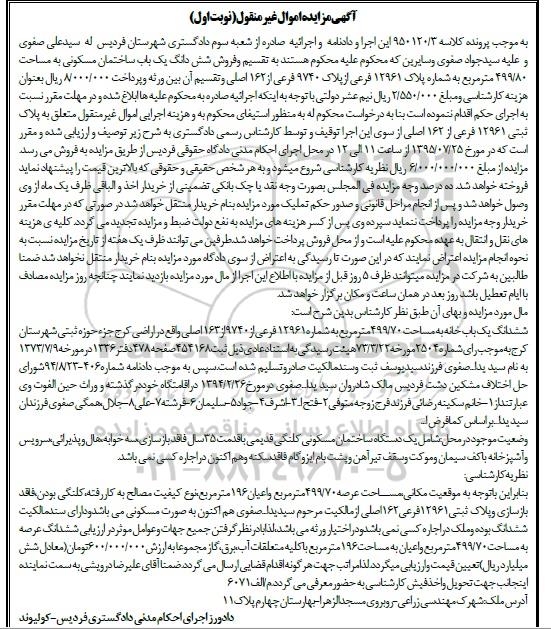 آگهی مزایده اموال غیر منقول (نوبت اول)
به موجب پرونده کلاسه ۹۵۰۱۲۰/۳ این اجرا و دادنامه و اجرائیه صادره از شعبه سوم دادگستری شهرستان فردیس له سیدعلی صفوی
و علیه سیدجواد صفوی وسایرین که محکوم علیه محکوم هستند به تقسیم وفروش شش دانگ یک باب ساختمان مسکونی به مساحت
۴۹۹/۸۰ مترمربع به شماره پلاک ۱۲۹۶۱ فرعی از پلاک ۹۷۴۰ فرعی از ۱۶۲ اصلی وتقسیم آن بین ورثه وپرداخت ۸/۰۰۰/۰۰۰ ریال بعنوان
هزینه کارشناسی ومبلغ ۲/۵۵۰/۰۰۰ ریال نیم عشر دولتی با توجه به اینکه اجرائیه صادره به محکوم علیه هاابلاغ شده و در مهلت مقرر نسبت
به اجرای حکم اقدام ننموده است بنا به درخواست محکوم له به منظور استیفای محکوم به و هزینه اجرایی اموال غیر منقول متعلق به پلاک
ثبتی ۱۲۹۶۱ فرعی از ۱۶۲ اصلی از سوی این اجرا توقیف و توسط کارشناس رسمی دادگستری به شرح زیر توصیف و ارزیابی شده و مقرر
است که در مورخ ۱۳۹۵/۰۷/۲۵ از ساعت ۱۱ الی ۱۲ در محل اجرای احکام مدنی دادگاه حقوقی فردیس از طریق مزایده به فروش می رسد
مزایده از مبلغ ۶/۰۰۰/۰۰۰/۰۰۰ ریال نظریه کارشناسی شروع میشود و به هر شخص حقیقی و حقوقی که بالاترین قیمت را پیشنهاد نماید
فروخته خواهد شد. ده درصد وجه مزایده فی المجلس بصورت وجه نقد یا چک بانکی تضمینی از خریدار اخذ و الباقی ظرف یک ماه از وی
وصول خواهد شد و پس از انجام مراحل قانونی و صدور حکم تملیک مورد مزایده بنام خریدار منتقل خواهد شد در صورتی که در مهلت مقرر
خریدار وجه مزایده را پرداخت ننماید سپرده وی پس از کسر هزینه های مزایده به نفع دولت ضبط و مزایده تجدید می گردد. کلیه ی هزینه
های نقل و انتقال به عهده محکوم علیه است و از محل فروش پرداخت خواهد شد طرفین می توانند ظرف یک هفته از تاریخ مزایده نسبت به
نحوه انجام مزایده اعتراض نمایند که در این صورت تا رسیدگی به اعتراض از سوی دادگاه مورد مزایده بنام خریدار منتقل نخواهد شد ضمنا
طالبین به شرکت در مزایده میتوانند ظرف ۵ روز قبل از مزایده با اطلاع این اجرا از مال مورد مزایده بازدید نمایند چنانچه روز مزایده مصادف
با ایام تعطیل باشد روز بعد در همان ساعت و مکان برگزار خواهد شد.
مال مورد مزایده و بهای آن طبق نظر کارشناس بدین شرح است:
ششدانگ یک باب خانه به مساحت ۴۹۹/۷۰ مترمربع به شماره ۱۲۹۶۱ فرعی از ۹۷۴۰/ ۱۶۳ اصلی واقع در اراضی کرج جزء حوزه ثبتی شهرستان
کرج به موجب رای شماره ۲۵۰۴ مورخه ۷۳/۳/۲۲ هیئت رسیدگی به استناد عادی ذیل ثبت ۴۵۴۱۶۸ صفحه ۴۷۸ دفتر ۱۳۳۶ در مورخه ۱۳۷۳/۷/۹
به نام سید یدا.. صفوی فرزند سید یوسف ثبت وسند مالکیت صادر وتسلیم شده است سپس به موجب دادنامه شماره ۴۰۶-۹۴/۸/۲۳ شورای
حل اختلاف مشکین دشت فردیس مالک شادروان سید یدا.. صفوی در مورخ ۱۳۹۴/۲/۲۶ در اقامتگاه خود در گذشته و وراث حین الفوت وی
عبارتنداز ۱-خانم سکینه رضائی فرزند فرج زوجه متوفی ۲-فتح ا.. ۳-اشرف ۴-جواد ۵-سلیمان ۶-فرشته ۷-علی ۸-جلال همگی صفوی فرزندان
سید یدا.. براس کمافرض ا...
وضعیت موجود در محل شامل یک دستگاه ساختمان مسکونی کلنگی قدیمی باقدمت ۳۵ سال فاقد بازسازی، سه خوابه، هال وپذیرائی، سرویس
و آشپزخانه با کف سیمان وموکت وسقف تیر آهن وپشت بام ایزوگام فاقد سکنه وهم اکنون در اجاره کسی نمی باشد.
نظریه کارشناسی:
بنابراین با توجه به موقعیت مکانی، مساحت عرصه ۴۹۹/۷۰ مترمربع واعیان ۱۹۶ مترمربع، نوع کیفیت مصالح به کار رفته، کلنگی بودن، فاقد
بازسازی وپلاک ثبتی ۱۲۹۶۱ فرعی ۱۶۲ اصلی از مالکیت مرحوم سید یدا.. صفوی هم اکنون به صورت مسکونی می باشد و دارای سند مالکیت
ششدانگ بوده وملک در اجاره کسی نمی باشد و در اختیار ورثه می باشد، لذا با در نظر گرفتن جمیع جهات وعوامل موثر در ارزیابی ششدانگ عرصه
به مساحت ۴۹۹/۷۰ مترمربع واعیان به مساحت ۱۹۶ مترمربع با کلیه متعلقات آب، برق، گاز مجموعا به ارزش ۶۰۰/۰۰۰/۰۰۰ تومان (معادل شش
میلیارد ریال) تعیین قیمت وارزیابی میگردد. لذا مراتب جهت هر گونه اقدام قضایی ارسال می گردد ضمنا آقای علیرضا درویشی به سمت نماینده
اینجانب جهت تحویل واخذ فیش کارشناسی به حضور معرفی می گردد.م/الف ۶۰۷۱
آدرس ملک: شهرک مهندسی زراعی-روبروی مسجدالزهرا-بهارستان چهارم پلاک ۱۱
دادورز اجرای احکام مدنی دادگستری فردیس-کولیوند
پایگاه اطلاع رسانی مناقصه و مزایده
۰۲۱-۸۸۳۴۹۶۷۰-۵